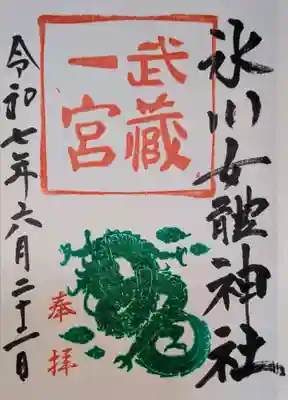 氷川女體神社
武蔵
一宮
奉拝
令和七年六月二十二日